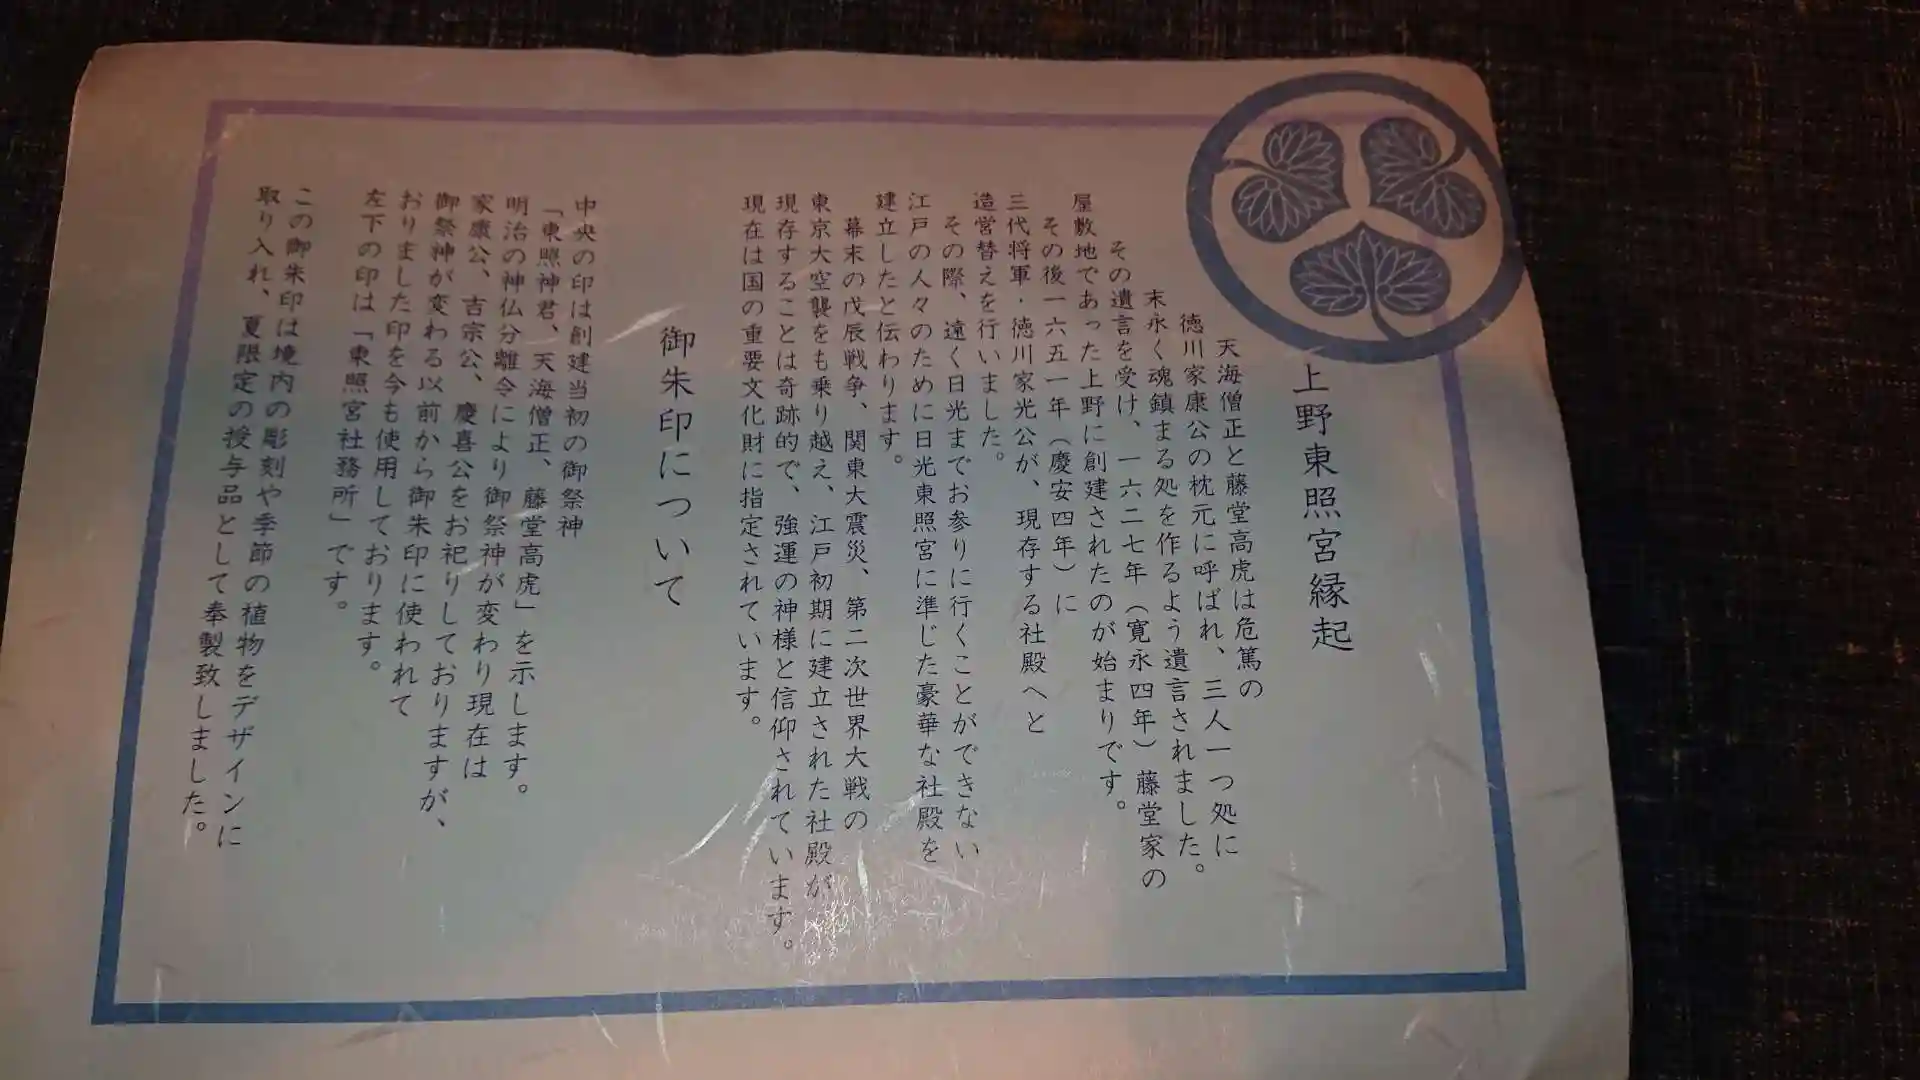 上野東照宮縁起
天海僧正と藤堂高虎は危篤の
徳川家康公の枕元に呼ばれ、三人一つ処に
末永く魂鎮まる処を作るよう遺言されました。
その遺言を受け、一六二七年（寛永四年）藤堂家の
屋敷地であった上野に創建されたのが始まりです。
その後一六五一年（慶安四年）に
三代将軍・徳川家光公が、現存する社殿へと
造営替えを行いました。
その際、遠く日光までお参りに行くことができない
江戸の人々のために日光東照宮に準じた豪華な社殿を
建立したと伝わります。
幕末の戊辰戦争、関東大震災、第二次世界大戦の
東京大空襲をも乗り越え、江戸初期に建立された社殿が
現存することは奇跡的で、強運の神様と信仰されています。
現在は国の重要文化財に指定されています。
御朱印について
中央の印は創建当初の御祭神
「東照神君、天海僧正、藤堂高虎」を示します。
明治の神仏分離令により御祭神が変わり現在は
家康公、吉宗公、慶喜公をお祀りしておりますが、
御祭神が変わる以前から御朱印に使われて
おりました印を今も使用しております。
左下の印は「東照宮社務所」です。
この御朱印は境内の彫刻や季節の植物をデザインに
取り入れ、夏限定の授与品として奉製致しました。